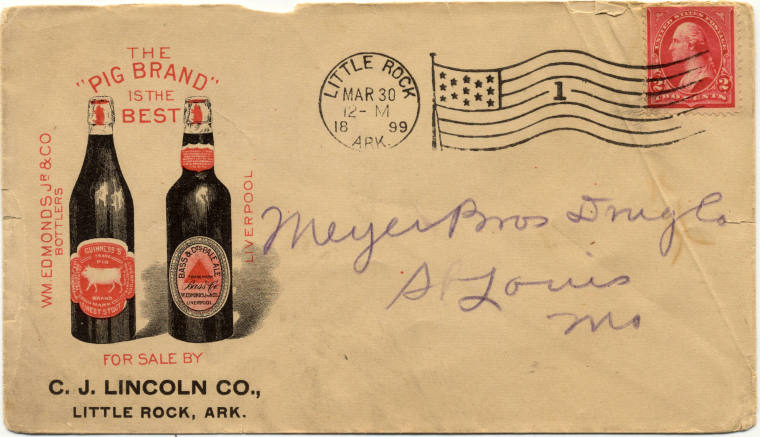 THE
"PIG BRAND"
IS THE
BEST
WM. EDMONDS, JR & CO
BOTTLERS
LIVERPOOL
GUINNESS'S
TRADE MARK
PIG
BRAND
FINEST STOUT
BASS & COS PALE ALE
TRADE MARK
Bass & Co
W. EDMONDS JR & CO.
LIVERPOOL
FOR SALE BY
C. J. LINCOLN CO.,
LITTLE ROCK, ARK.
LITTLE ROCK
MAR 30
12-M
18 99
ARK.
1
UNITED STATES POSTAGE
2 2
TWO CENTS
Meyer Bros Drug Co
St Louis
Mo